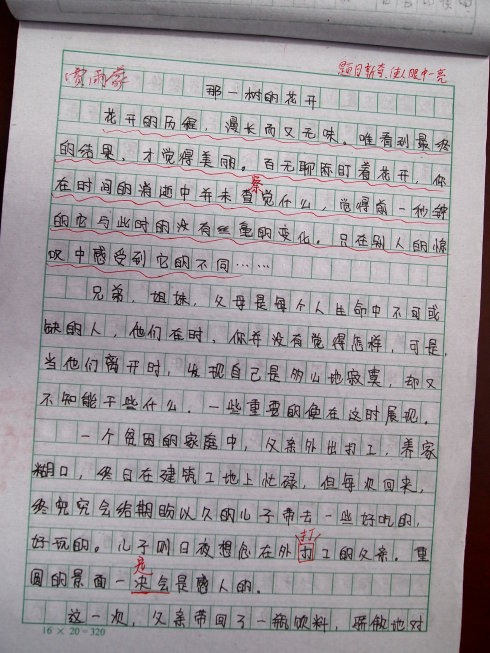 题目新奇，使人眼中一亮
贾雨蒙
那一树的花开
花开的历程，漫长而又无味。唯看到最终
的结果，才觉得美丽。百无聊际盯着花开，你
察
在时间的消逝中并未查觉什么，觉得前一秒钟
的它与此时的没有丝毫的变化。只在别人的惊
叹中感受到它的不同……
兄弟，姐妹，父母是每个人生命中不可或
缺的人，他们在时，你并没有觉得怎样，可是，
当他们离开时，发现自己是多么地寂寞，却又
不知能干些什么，一些重要的便在这时展现。
一个贫困的家庭中，父亲外出打工，养家
糊口，终日在建筑工地上忙碌，但每次回来，
终究究会给期盼以久的儿子带去一些好吃的，
打
好玩的。儿子则日夜想念在外打工的父亲。重
圆的景面一决会是感人的。
这一次，父亲带回了一瓶饮料，骄傲地对
16 × 20 = 320